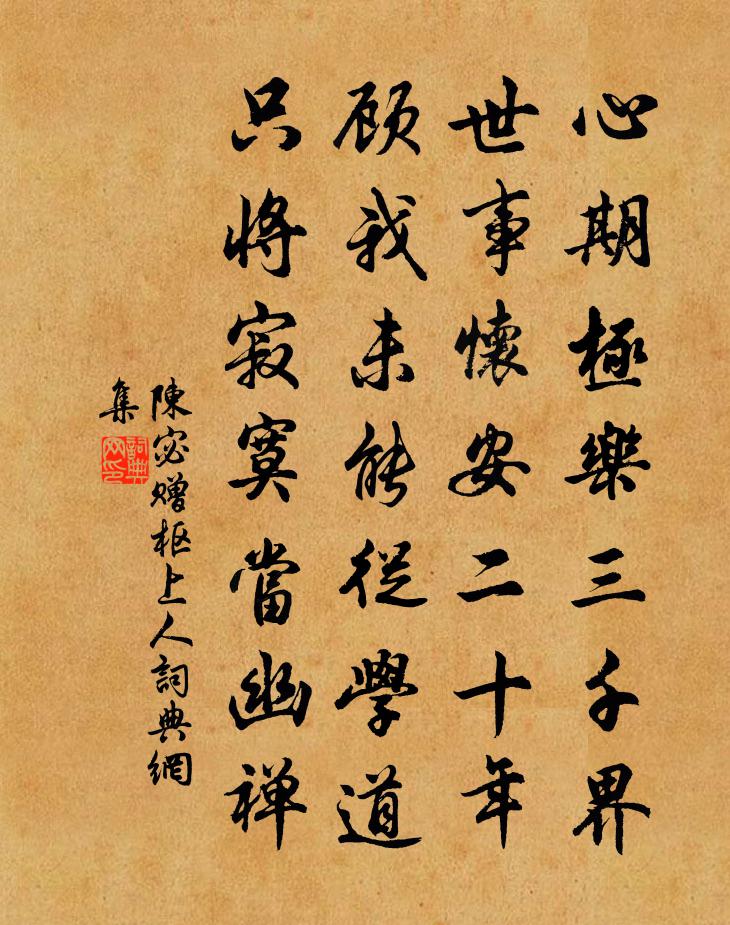 心期極樂三千界
世事懷安二十年
顧我未能從學道
只將寂寞當幽禅
陳宓赠枢上人詞典網
集
詞典网印